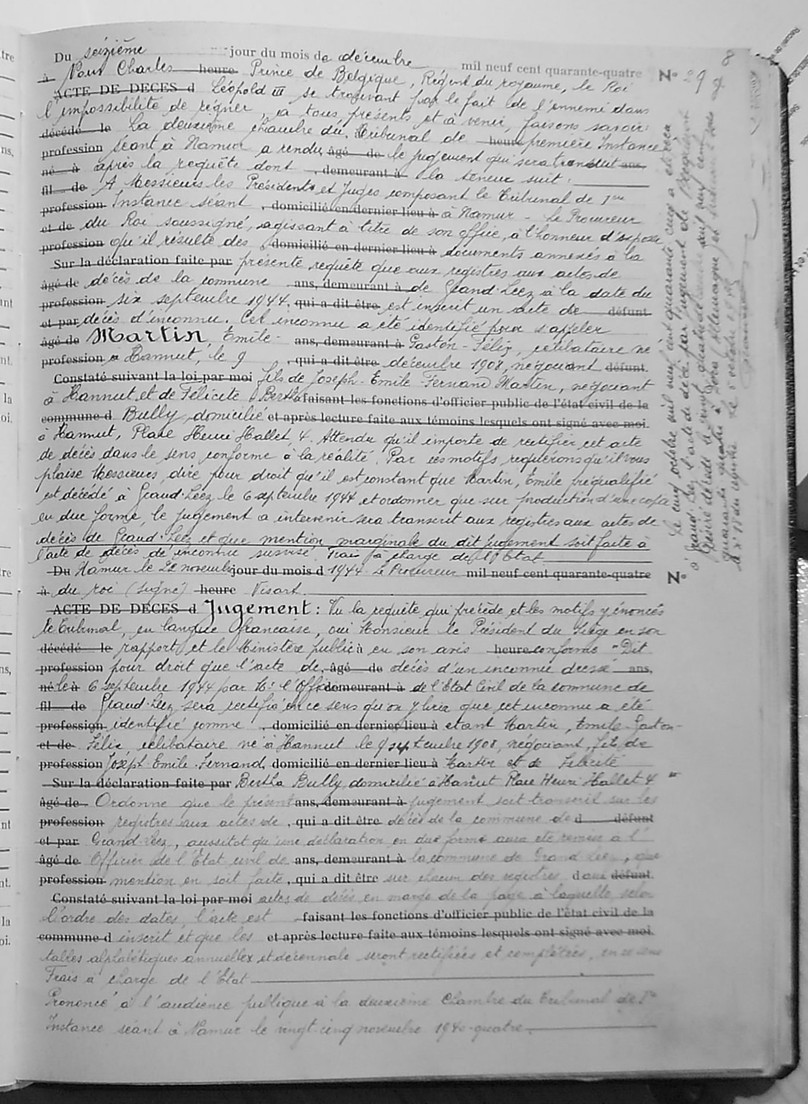 Du seizième jour du mois de décembre mil neuf cent quarante-quatre N° 29
à Nous Charles heure Prince de Belgique, Régent du royaume, le Roi
ACTE DE DECES d Léopold III se trouvant par le fait de l'ennemi dans
l'impossibilité de régner, à tous présents et à venir, faisons savoir:
décédé le La deuxième chambre du Tribunal de heure première Instance
profession séant à Namur a rendu âgé de le jugement qui sera transcrit ans,
né à après la requête dont , demeurant à la teneur suit:
fil de A Messieurs les Présidents et Juges composant le Tribunal de 1ere
profession Instance séant , domicilié en dernier lieu à à Namur - Le Procureur
et de du Roi soussigné, agissant à titre de son office, à l'honneur d'exposer
profession qu'il résulte des , domicilié en dernier lieu à documents annexés à la
Sur la déclaration faite par présente requête que aux registres aux actes de
âgé de décès de la commune ans, demeurant à de Grand-Leez à la date du
profession six septembre 1944, qui a dit être est inscrit un acte de défunt
et par décès d'inconnu. Cet inconnu a été identifié pour s'appeler
âgé de Martin, Emile- ans, demeurant à Gaston-Félix, célibataire né
profession à Hannut, le 9 , qui a dit être décembre 1908, négociant défunt.
Constaté suivant la loi par moi fils de Joseph-Emile-Fernand Martin, négociant
à Hannut et de Félicité Bertha faisant les fonctions d'officier public de l'état civil de la
commune d Bully, domicilié et après lecture faite aux témoins lesquels ont signé avec moi.
à Hannut, Place Henri Hallet, 4. Attendu qu'il importe de rectifier cet acte
de décès dans le sens conforme à la réalité. Par ces motifs, requérons qu'il vous
plaise Messieurs, dire pour droit qu'il est constant que Martin, Emile préqualifié
est décédé à Grand-Leez le 6 septembre 1944 et ordonner que sur production d'une copie
en due forme, le jugement à intervenir sera transcrit aux registres aux actes de
décès de Grand-Leez et que mention marginale du dit jugement soit faite à
l'acte de décès de inconnu susvisé. Frais à charge de l'Etat
Du Namur le 22 novembre jour du mois d 1944 Le Procureur mil neuf cent quarante-quatre N°
à du roi (signé) heure Visart.
ACTE DE DECES d Jugement: Vu la requête qui précède et les motifs y énoncés
le Tribunal, en langue française, oui Monsieur le Président du Siège en son
décédé le rapport et le Ministère public à en son avis heure conforme "Dit
profession pour droit que l'acte de âgé de décès d'un inconnu dressé ans,
né le à 6 septembre 1944 par Mr l'Off. demeurant à de l'Etat Civil de la commune de
fil de Grand-Leez, sera rectifié en ce sens qu'on y lira que cet inconnu a été
profession identifié comme , domicilié en dernier lieu à étant Martin, Emile-Gaston-
et de Félix, célibataire né à Hannut le 9 septembre 1908, négociant, fils de
profession Joseph Emile Fernand, domicilié en dernier lieu à Martin et de Félicité
Sur la déclaration faite par Bertha Bully, domicilié à Hannut Place Henri Hallet 4 "
âgé de Ordonne que le présent ans, demeurant à jugement soit transcrit sur les
profession registres aux actes de , qui a dit être décès de la commune de d défunt
et par Grand-Leez, aussitôt qu'une déclaration en due forme aura été remise à l'
âgé de Officier de l'Etat civil de ans, demeurant à la commune de Grand-Leez, que
profession mention en soit faite, qui a dit être sur chacun des registres d aux défunt.
Constaté suivant la loi par moi actes de décès en marge de la page à laquelle selon
l'ordre des dates, l'acte est faisant les fonctions d'officier public de l'état civil de la
commune d inscrit et que les et après lecture faite aux témoins lesquels ont signé avec moi.
tables alphabétiques annuelles et décennale seront rectifiées et complétées, en ce sens
Frais à charge de l'Etat
Prononcé à l'audience publique à la deuxième Chambre du Tribunal de 1re
Instance séant à Namur le vingt-cinq novembre 1940-quatre.